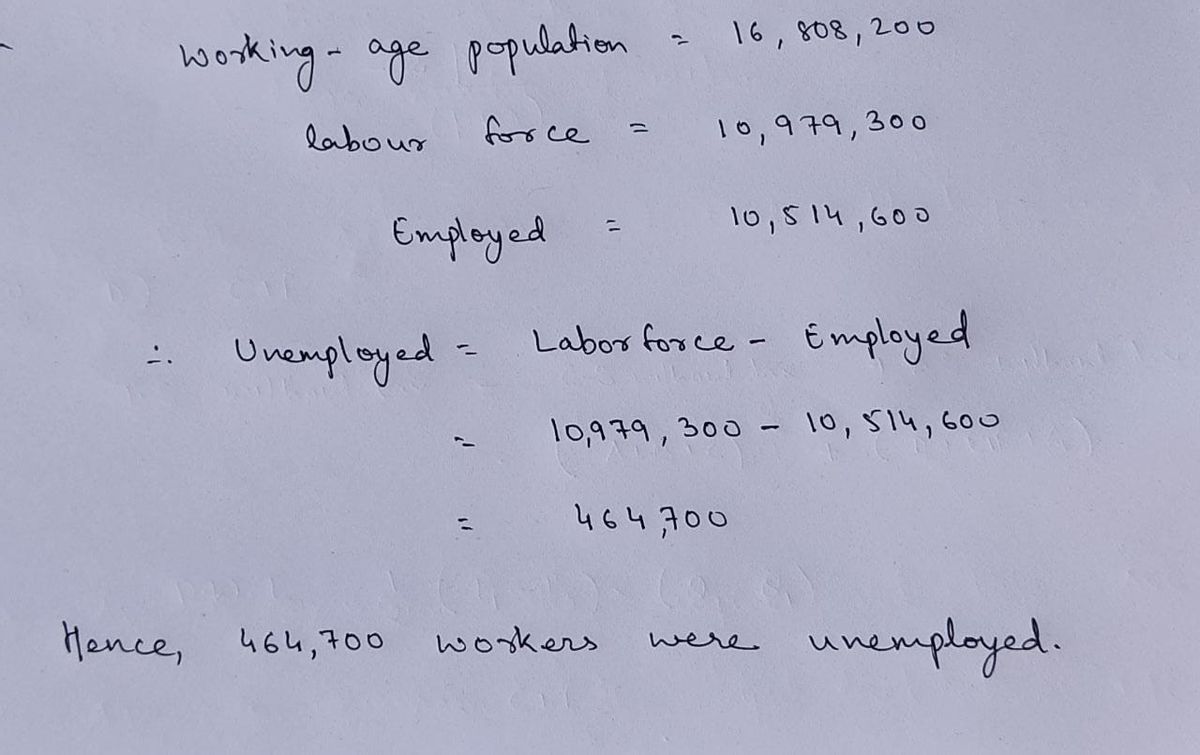 Working-age population = 16,808,200
labour force = 10,979,300
Employed = 10,514,600
∴ Unemployed = Labor force - Employed
= 10,979,300 - 10,514,600
= 464,700
Hence, 464,700 workers were unemployed.